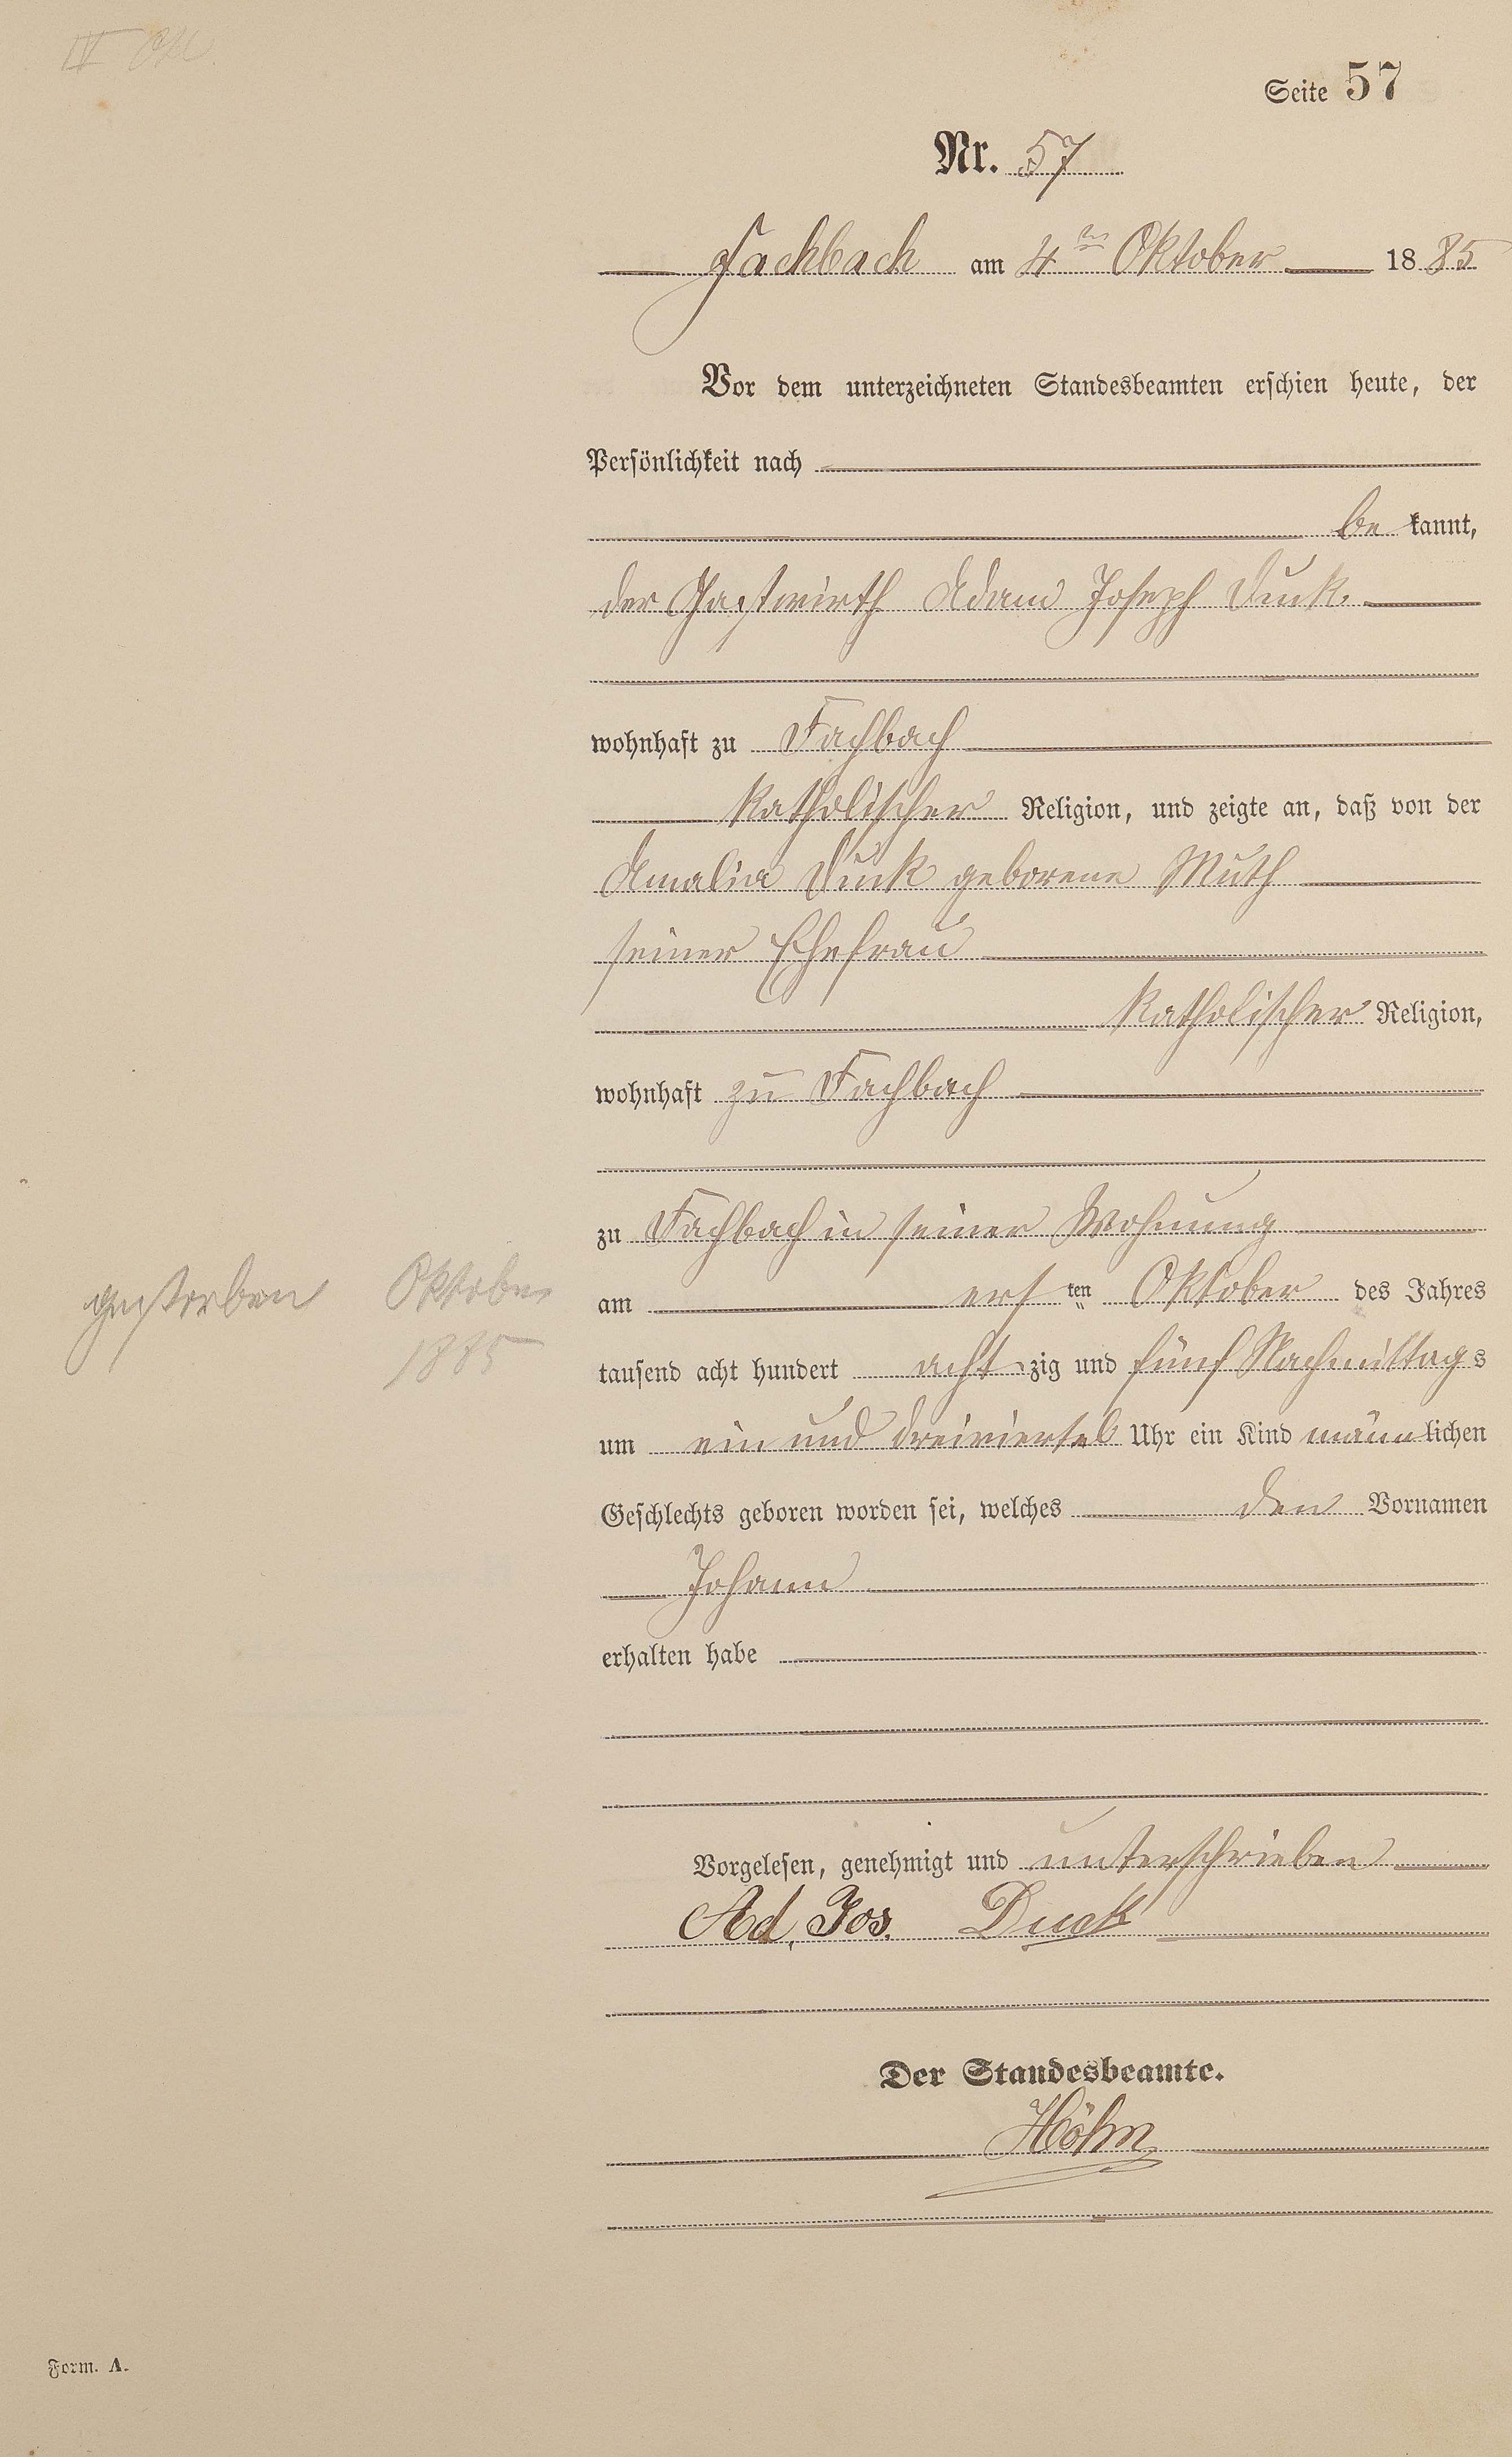 Seite 57
Nr. 57
Fachbach am 4ten Oktober 1885
Vor dem unterzeichneten Standesbeamten erschien heute, der
Persönlichkeit nach
be kannt,
der Gastwirth Adam Joseph Duck.
wohnhaft zu Fachbach
katholischer Religion, und zeigte an, daß von der
Amalia Duck geborene Muth
seiner Ehefrau
katholischer Religion,
wohnhaft zu Fachbach
zu Fachbach in seiner Wohnung
am ersten Oktober des Jahres
gestorben Oktober
1885
tausend acht hundert achtzig und fünf Nachmittags
um ein und dreiviertel Uhr ein Kind männlichen
Geschlechts geboren worden sei, welches den Vornamen
Johann
erhalten habe
Vorgelesen, genehmigt und unterschrieben
Ad. Jos. Duck
Der Standesbeamte.
Höhn
Form. A.